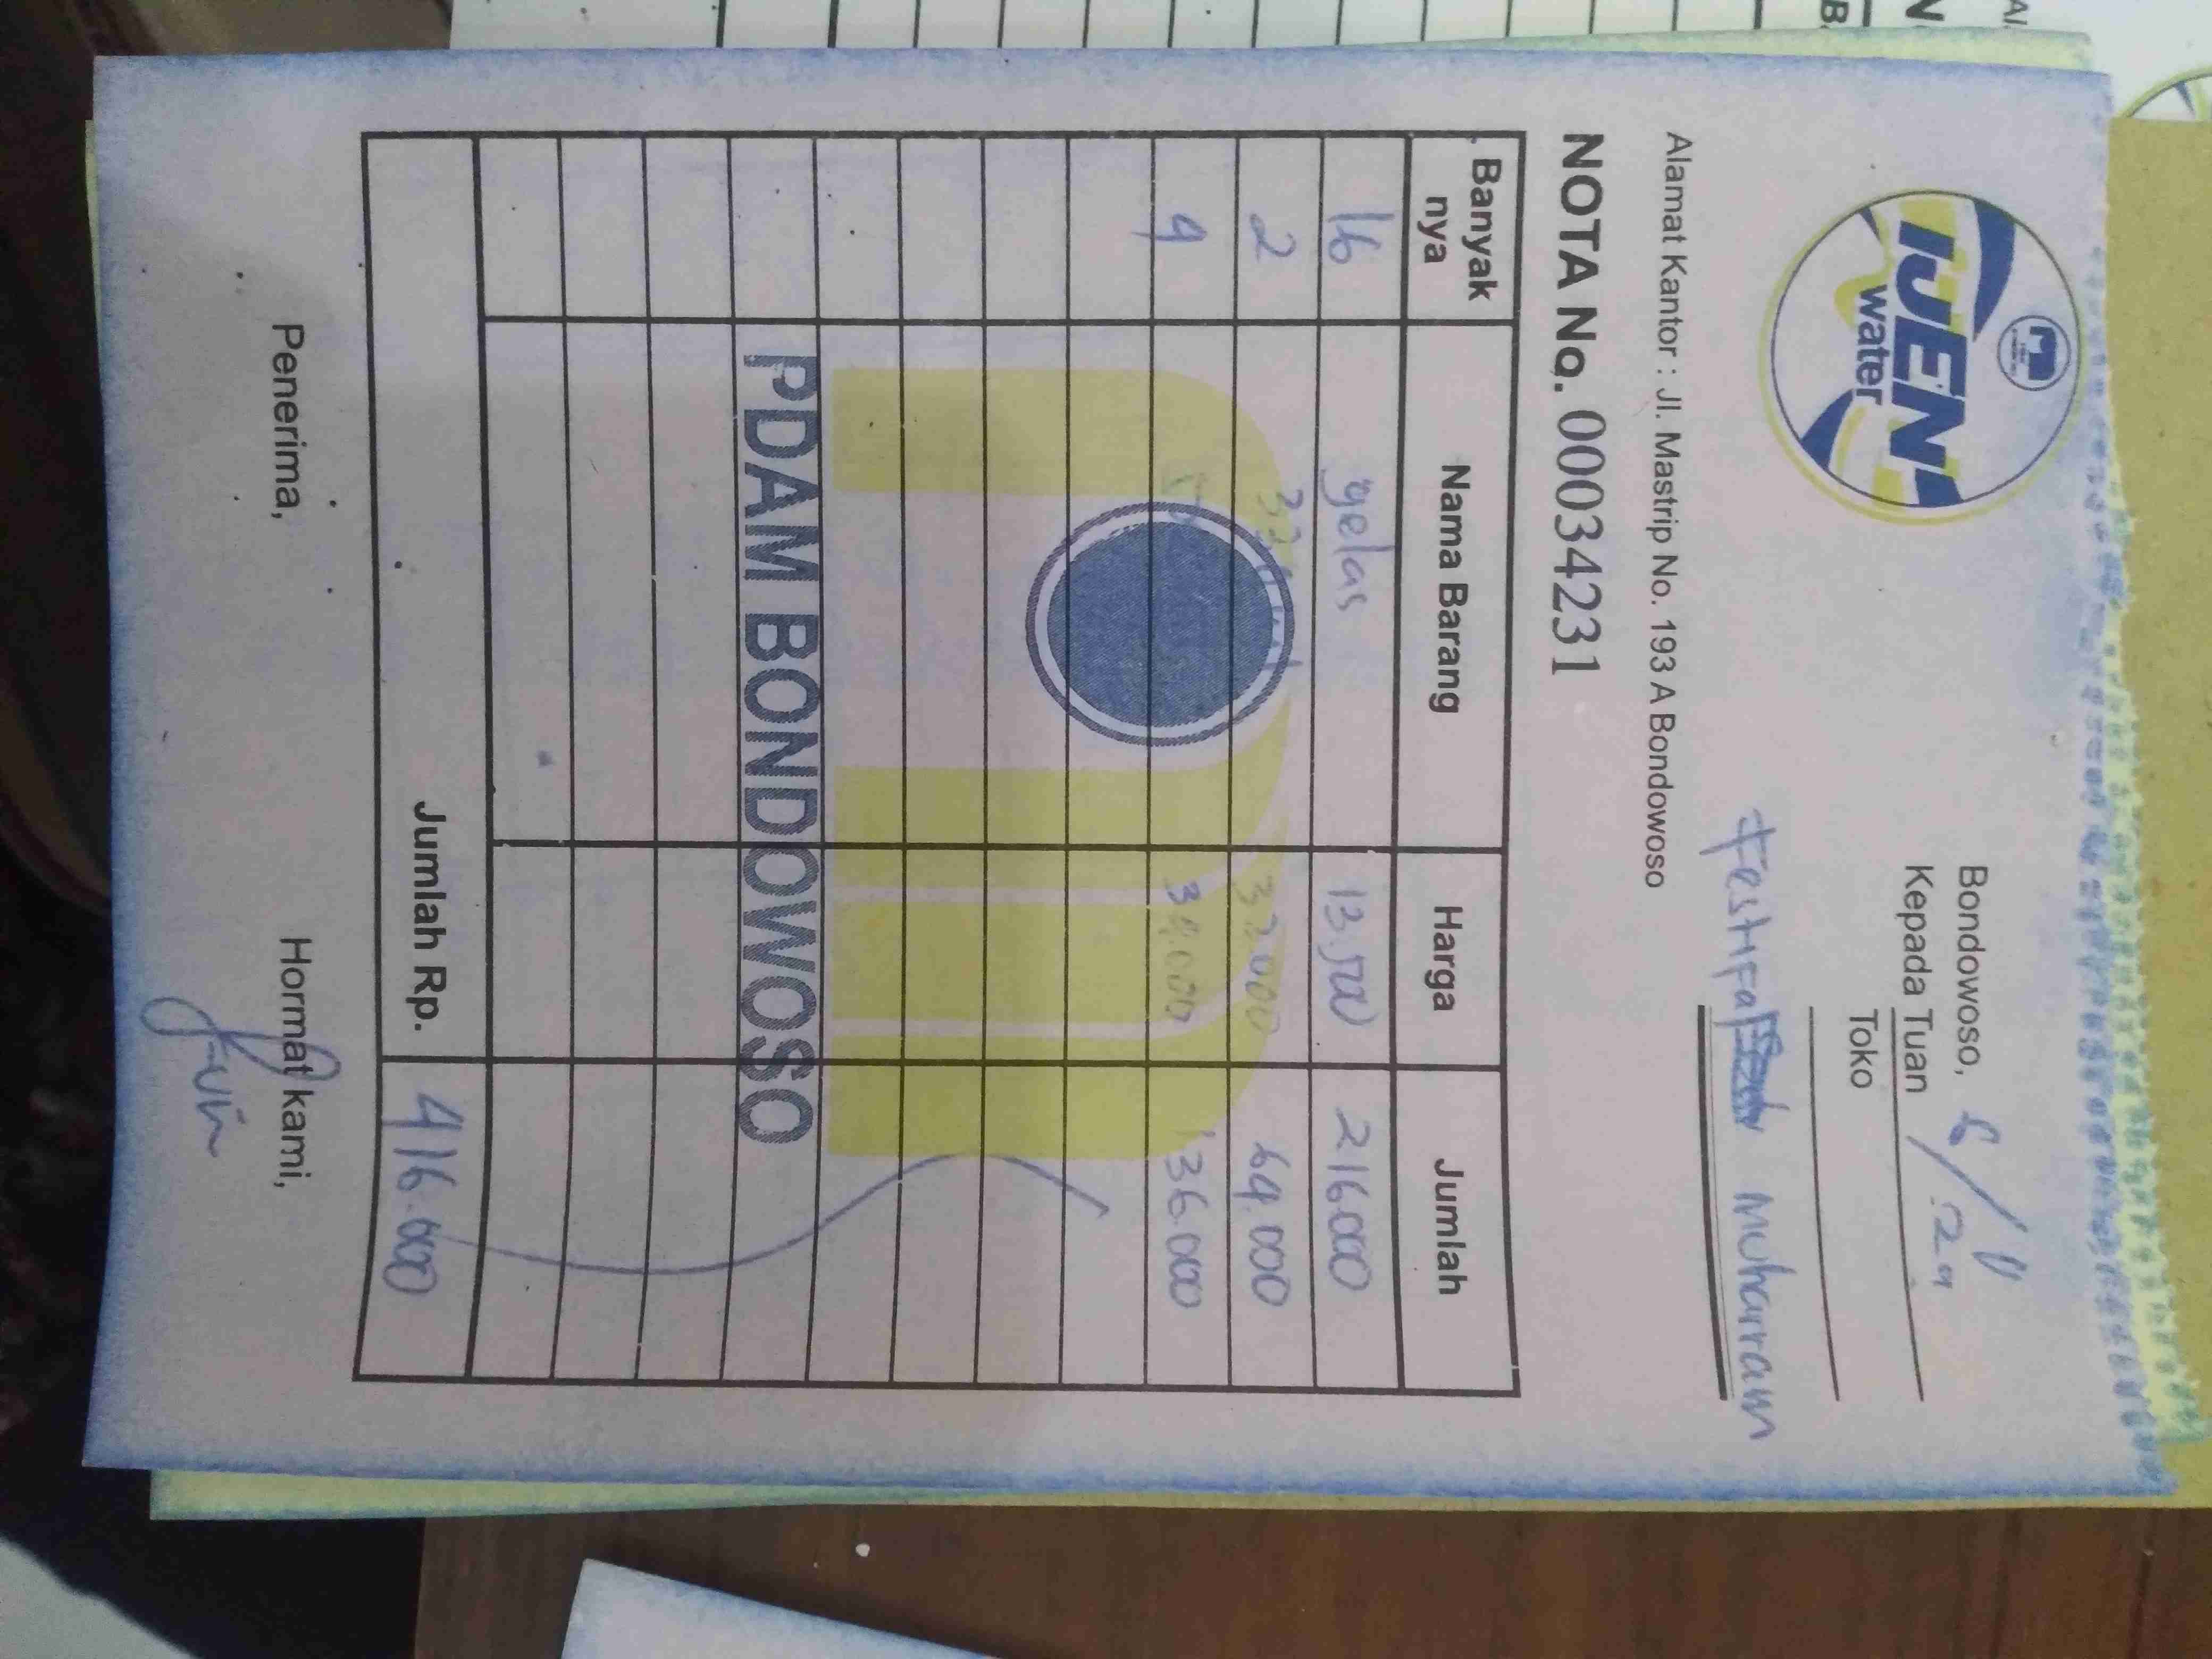 IJEN
water
Bondowoso, 6/11 '24
Kepada Tuan
Toko
Festifal Muharram
Alamat Kantor : Jl. Mastrip No. 193 A Bondowoso
NOTA No. 00034231
Banyak nya Nama Barang Harga Jumlah
16 gelas 13.500 216.000
2 32.000 64.000
4 34.000 136.000
PDAM BONDOWOSO
Jumlah Rp. 416.000
Penerima, Hormat kami,